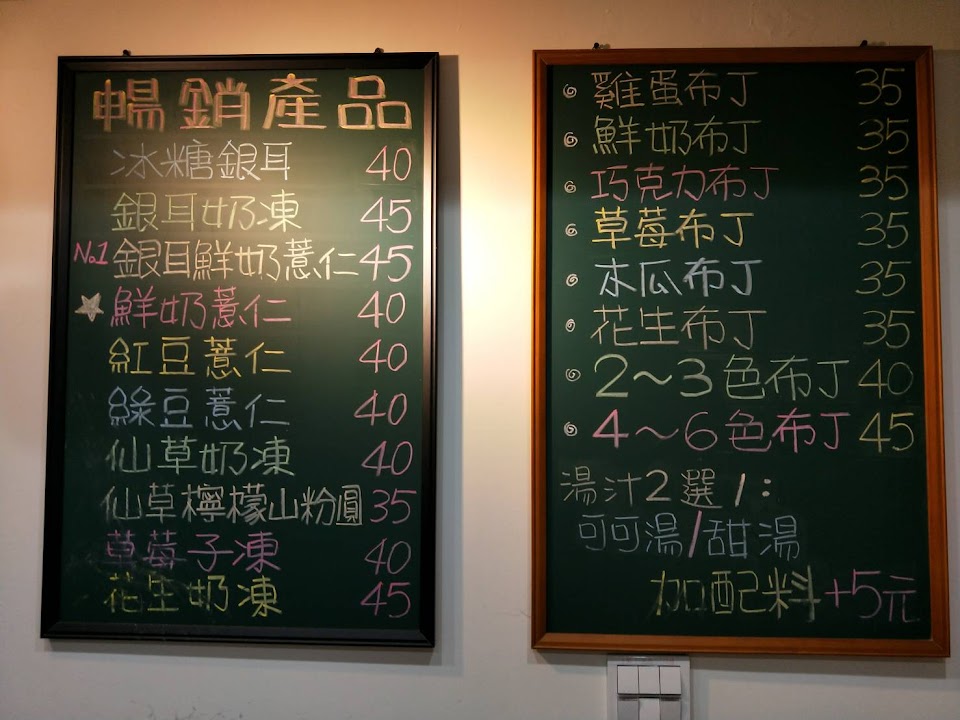 暢銷產品
冰糖銀耳 40
銀耳奶凍 45
No.1 銀耳鮮奶薏仁 45
鮮奶薏仁 40
紅豆薏仁 40
綠豆薏仁 40
仙草奶凍 40
仙草檸檬山粉圓 35
草莓子凍 40
花生奶凍 45
雞蛋布丁 35
鮮奶布丁 35
巧克力布丁 35
草莓布丁 35
木瓜布丁 35
花生布丁 35
2～3色布丁 40
4～6色布丁 45
湯汁2選1：
可可湯/甜湯
加配料+5元